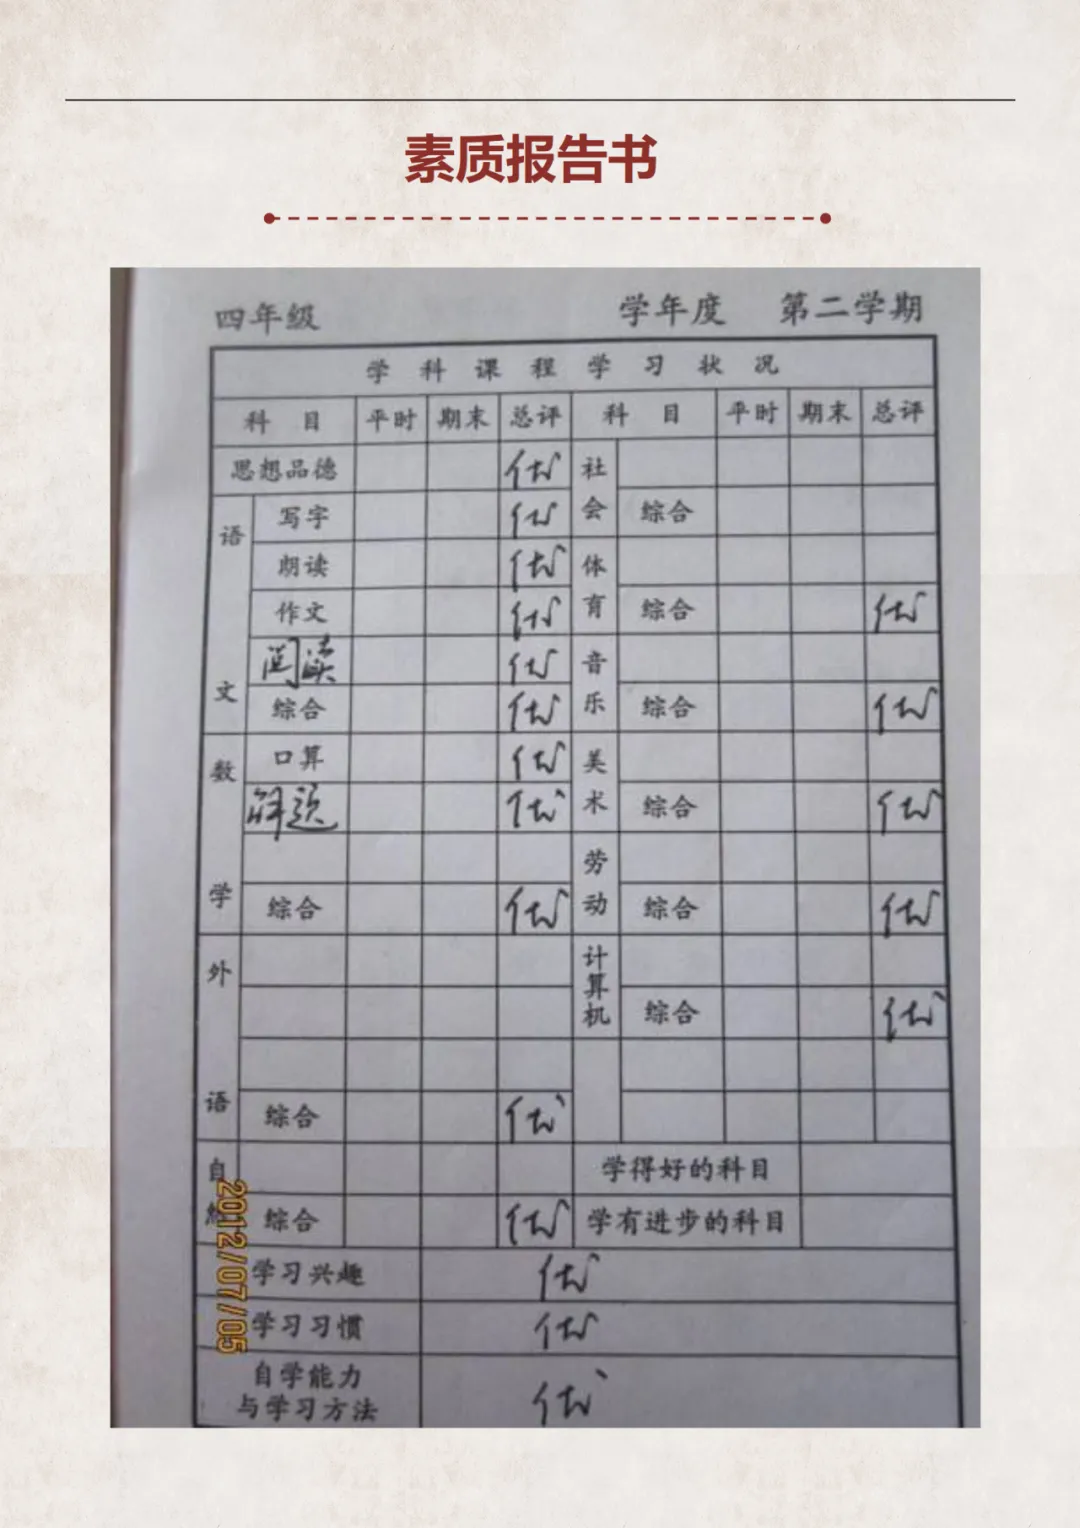 素质报告书
四年级 学年度 第二学期
学科课程学习状况
科目 平时 期末 总评 科目 平时 期末 总评
思想品德 优 社会
语文 写字 优 综合
朗读 优 体育
作文 优 综合 优
阅读 优 音乐
综合 优 综合 优
数学 口算 优 美术
解题 优 综合 优
劳动
综合 优 综合 优
外语 计算机
综合 优
综合 优
自然 学得好的科目
综合 优 学有进步的科目
学习兴趣 优
学习习惯 优
自学能力
与学习方法 优
2012/07/05